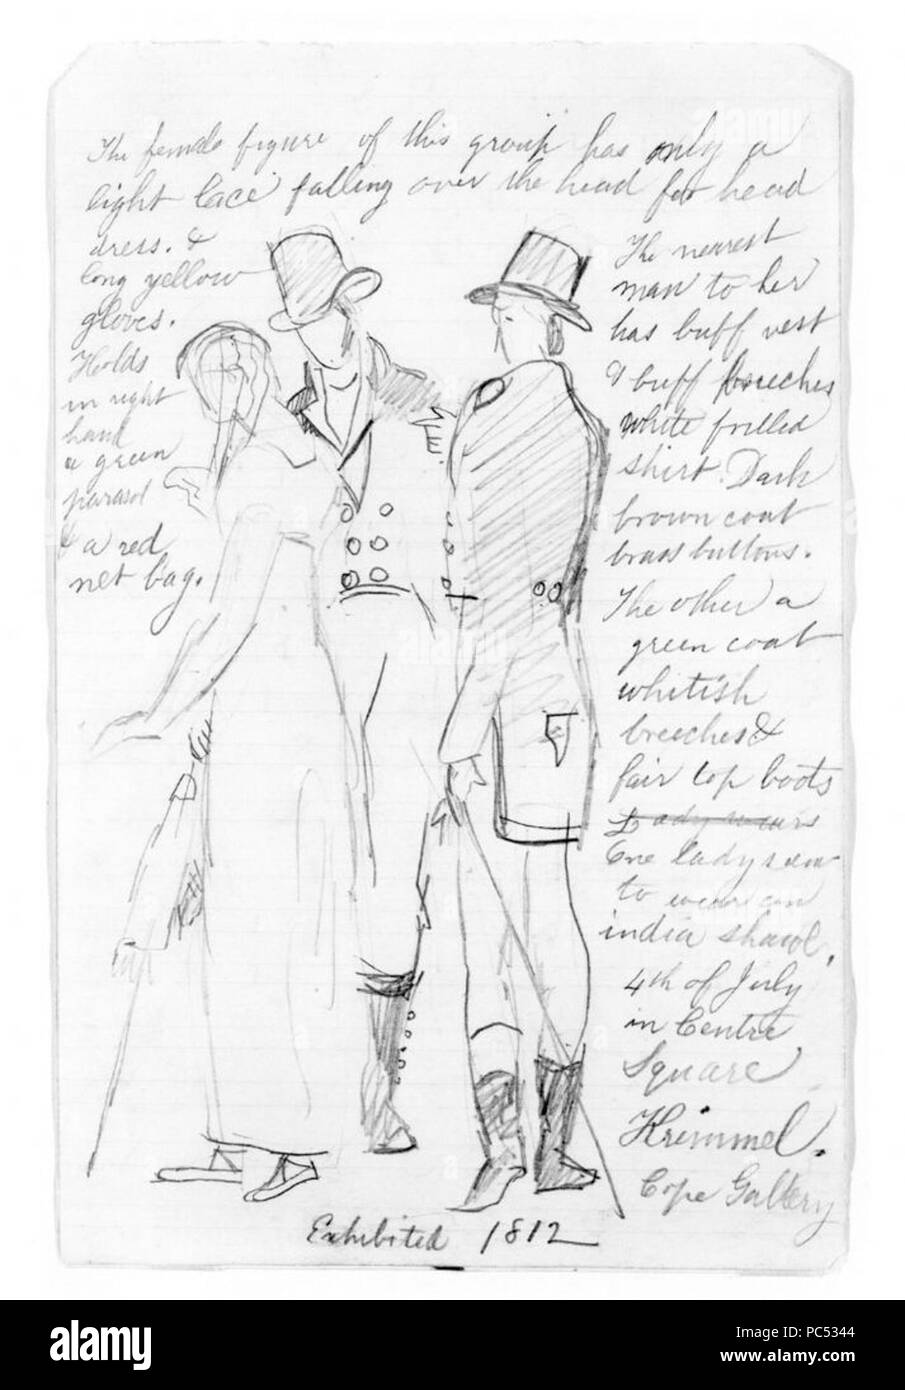 The female figure of this group has only a
light lace falling over the head for head
dress. &
long yellow
gloves.
Holds
in right
hand
a green
parasol
& a red
net bag.
The nearest
man to her
has buff vest
& buff breeches
white frilled
shirt. Dark
brown coat
brass buttons.
The other a
green coat
whitish
breeches &
fair top boots
Lady wears
One lady seen
to wear an
india shawl.
4th of July
in Centre
Square
Krimmel.
Cope Gallery
Exhibited 1812
alamy
alamy
alamy
Image ID: PC5344
www.alamy.com